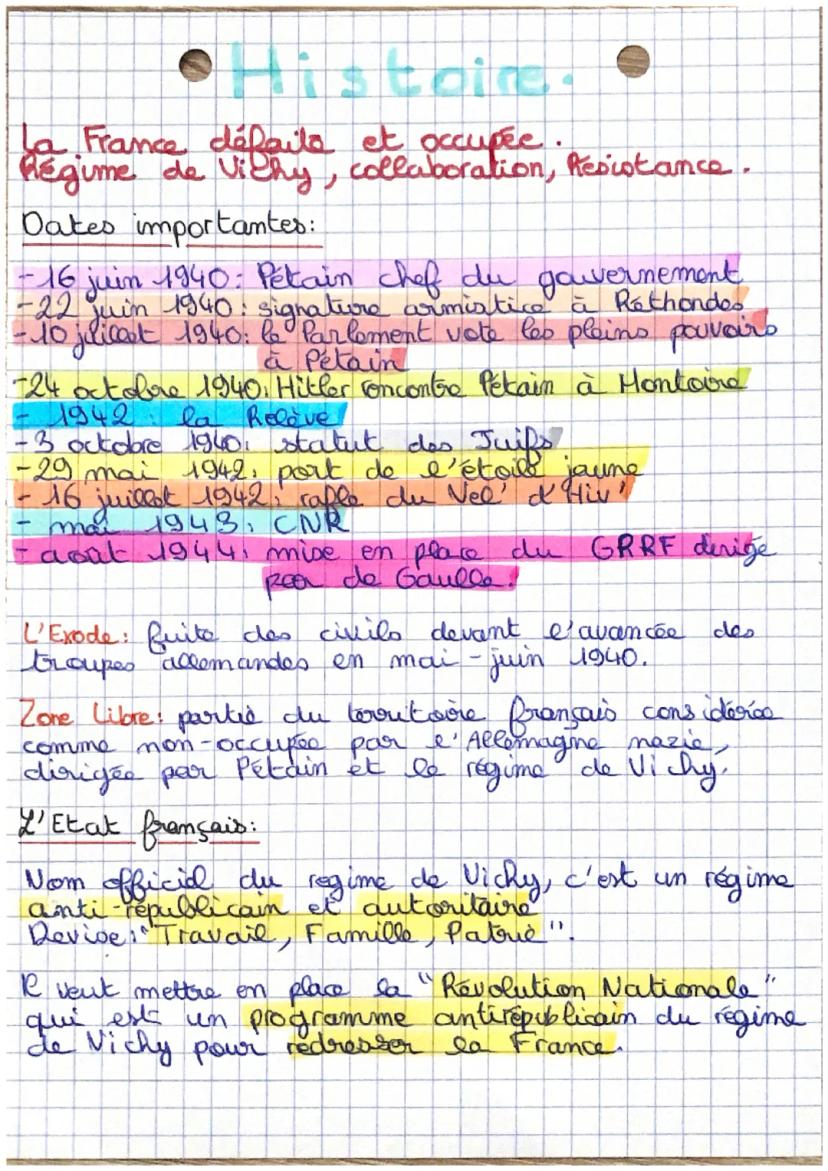 Histoire.
La France défaite et occupée.
Régime de Vichy, collaboration, Résistance.
Dates importantes:
- 16 juin 1940: Pétain chef du gouvernement
- 22 juin 1940: signature armistice à Réthondes
- 10 juillet 1940: le Parlement vote les pleins pouvoirs
à Pétain
- 24 octobre 1940: Hitler rencontre Pétain à Montoire
- 1942: la Relève
- 3 octobre 1940: statut des Juifs
- 29 mai 1942: port de l'étoile jaune
- 16 juillet 1942: rafle du Vel' d'Hiv'
- mai 1943: CNR
- août 1944: mise en place du GRRF dirigé
par de Gaulle.
L'Exode: fuite des civils devant l'avancée des
troupes allemandes en mai-juin 1940.
Zone Libre: partie du territoire français considérée
comme non-occupée par l'Allemagne nazie,
dirigée par Pétain et le régime de Vichy.
L'Etat français:
Nom officiel du regime de Vichy, c'est un régime
anti-républicain et autoritaire
Devise: "Travail, Famille, Patrie".
Il veut mettre en place la "Révolution Nationale"
qui est un programme antirépublicain du régime
de Vichy pour redresser la France.